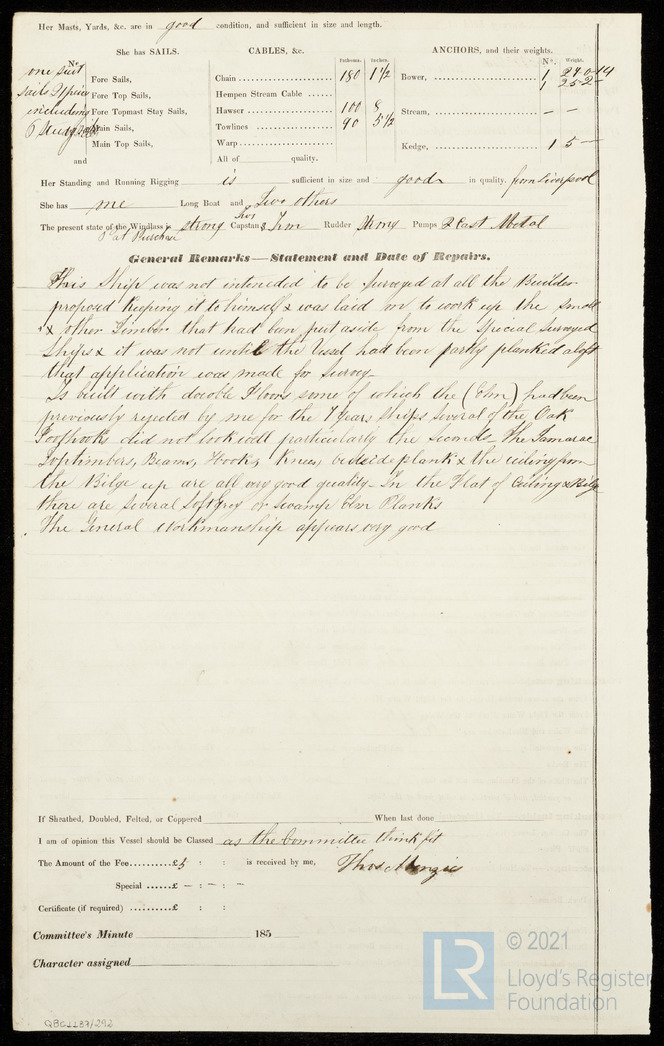 Her Masts, Yards, &c. are in good condition, and sufficient in size and length.
She has SAILS. CABLES, &c. ANCHORS, and their weights.
No. Fathoms. Inches. No. Weight.
one suit Fore Sails, Chain 180 1 1/2 Bower, 1 27-0-14
sails Fore Top Sails, Hempen Stream Cable 1 25 2 -
including Fore Topmast Stay Sails, Hawser 100 8 Stream, - -
6 Main Sails, Towlines 90 5 1/2
Main Top Sails, Warp Kedge, 1 5 -
and All of quality.
Her Standing and Running Rigging is sufficient in size and good in quality. from Liverpool
She has one Long Boat and Two others
The present state of the Windlass is strong Capstan & Two Firm Rudder Strong Pumps 2 Cast Metal
Pat Purchase
General Remarks—Statement and Date of Repairs.
This Ship was not intended to be surveyed at all the Builder
proposed keeping it to himself & was laid on to work up the small
& other Timber that had been put aside from the Special Surveyed
Ships & it was not until the Vessel had been partly planked aloft
that application was made for survey
Is built with double Floors some of which the (Elm) had been
previously rejected by me for the 7 years Ships several of the Oak
Foothooks did not look well particularly the seconds - The Tamarac
Toptimbers, Beams, Hooks, Knees, outside plank & the ceiling from
the Bilge up are all very good quality - In the Flat of Ceiling & Bilge
there are several soft grey or swamp Elm Planks
The General Workmanship appears very good
If Sheathed, Doubled, Felted, or Coppered When last done
I am of opinion this Vessel should be Classed as the Committee think fit
The Amount of the Fee.........£5 : : is received by me, Thos Menzies
Special ......£ - : - : -
Certificate (if required) ..........£ : :
Committee's Minute 185
Character assigned
QBC1137/292
LR
© 2021
Lloyd's Register
Foundation